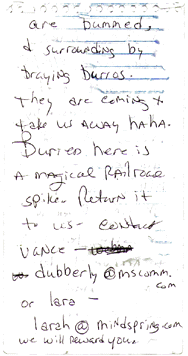 are bummed,
& surrounding by
braying burros.
They are coming to
take us away haha.
Buried here is
a magical Railroad
spike. Return it
to us - contact
Vance -
dubberly@mscomm.com
or lara -
larah@mindspring.com
we will reward you.